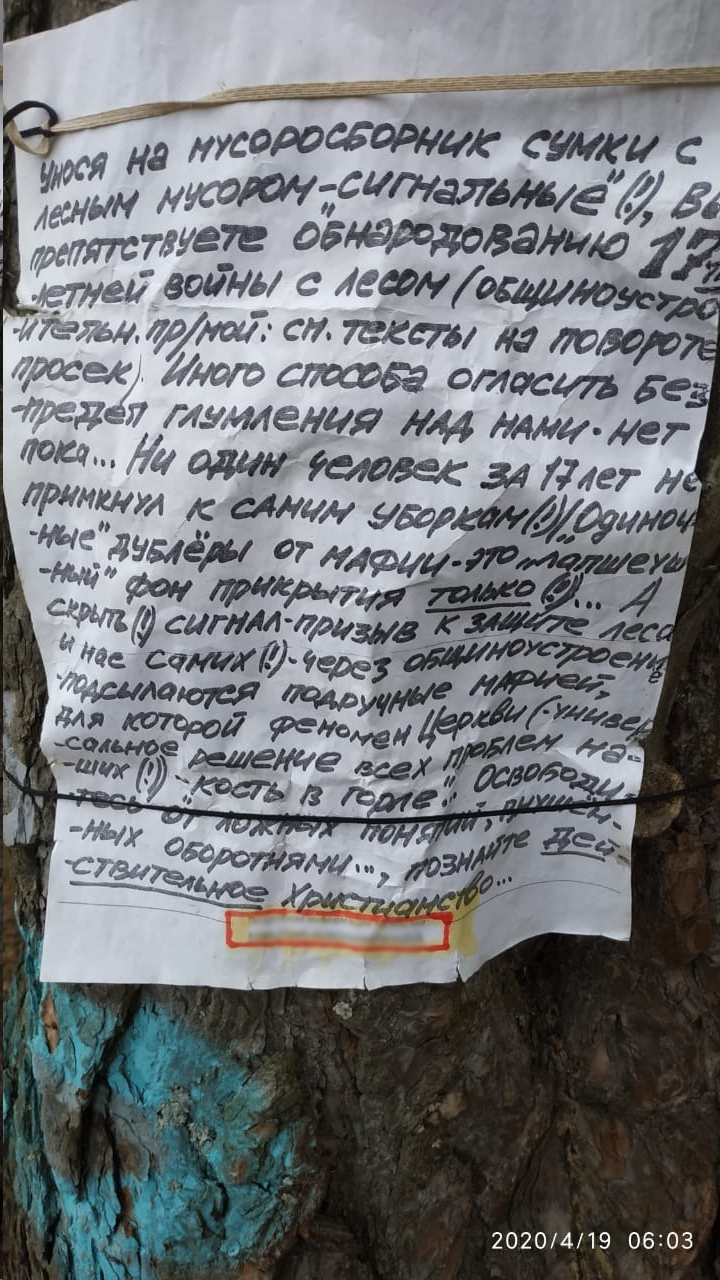 Унося на мусоросборник сумки с
лесным мусором-сигнальные"(!), Вы
препятствуете обнародованию 17ти
-летней войны с лесом (общиноустро
-ительн. пр/мой: см. тексты на повороте
просек). Иного способа огласить бес-
-предел глумления над нами - нет
пока... Ни один человек за 17 лет не
примкнул к самим уборкам(!)(Одиноч-
-ные" дублёры от мафии-это „лапшеуш-
-ный" фон прикрытия только (!)"... А
скрыть(!) сигнал-призыв к защите леса
и нас самих(!)-через общиноустроение
-подсылаются подручные мафией,
для которой феномен Церкви (универ-
-сальное решение всех проблем на-
-ших (!)) -"кость в горле". Освободи-
-тесь от ложных понятий, внушён-
-ных оборотнями..., познайте дей-
-ствительное Христианство...
2020/4/19 06:03